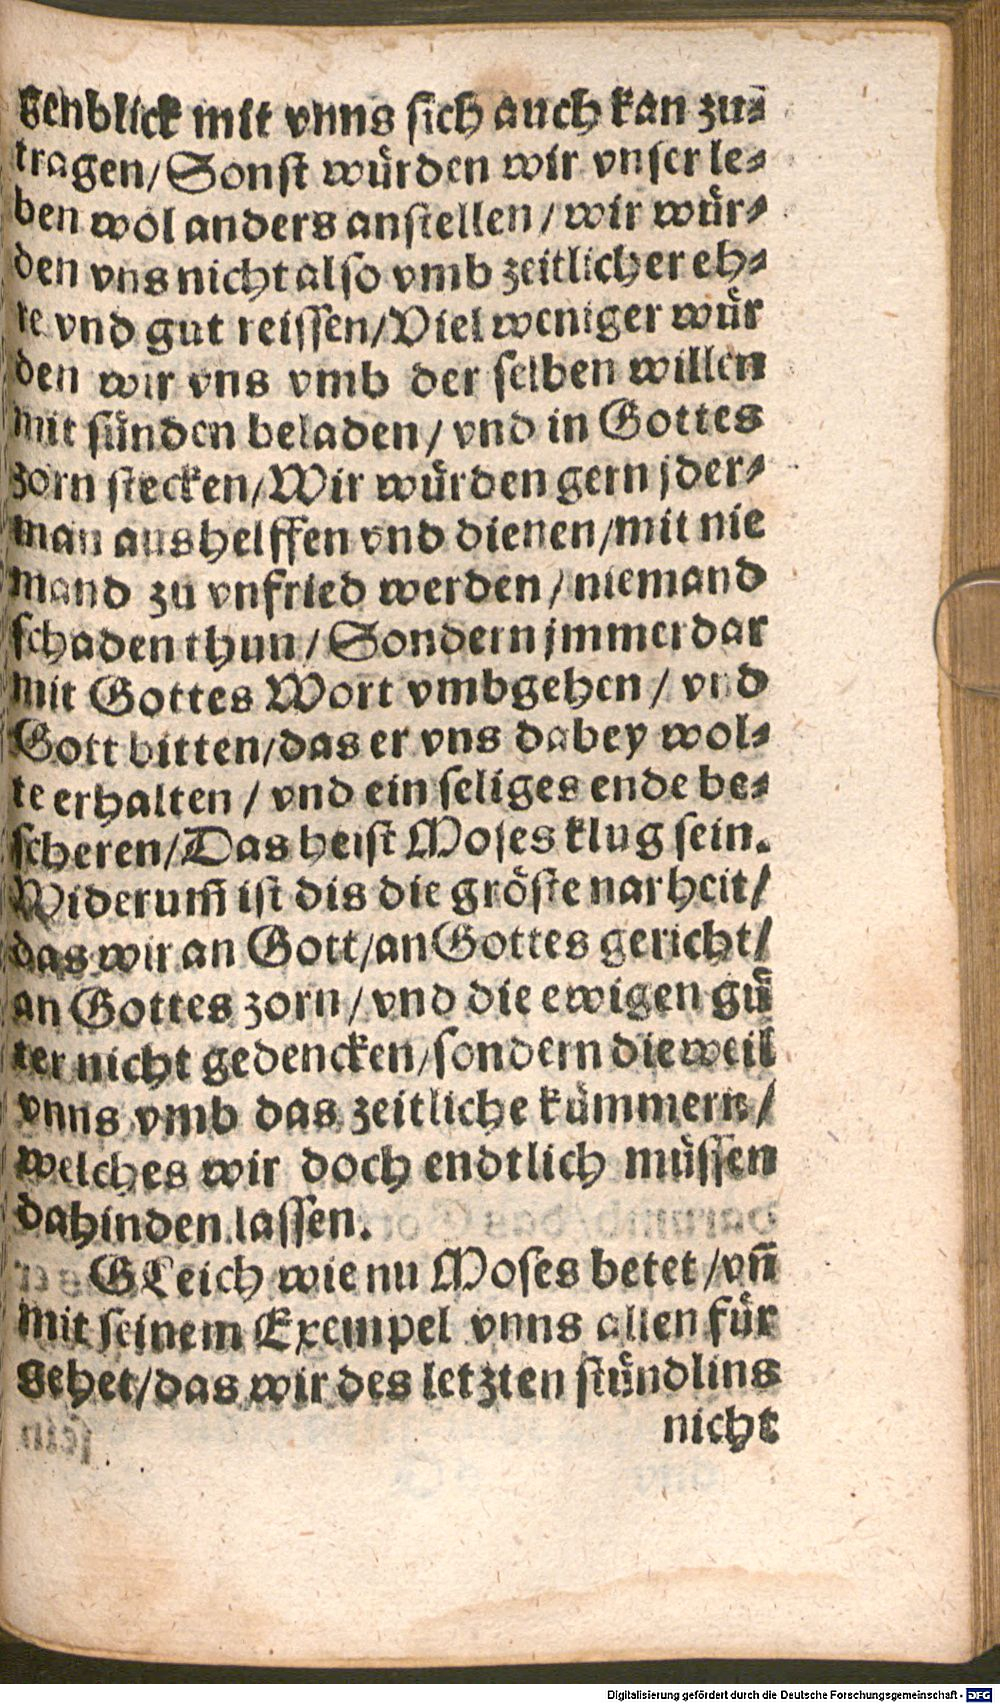 genblick mit vnns sich auch kan zu⸗
tragen/ Sonst würden wir vnser le⸗
ben wol anders anstellen/ wir wür⸗
den vns nicht also vmb zeitlicher eh⸗
re vnd gut reissen/ Viel weniger wür
den wir vns vmb der selben willen
mit sünden beladen/ vnd in Gottes
zorn stecken/ Wir würden gern jder⸗
man aushelffen vnd dienen/ mit nie
mand zu vnfried werden/ niemand
schaden thun/ Sondern jmmerdar
mit Gottes Wort vmbgehen/ vnd
Gott bitten/ das er vns dabey wol⸗
te erhalten/ vnd ein seliges ende be⸗
scheren/ Das heist Moses klug sein.
Widerum̄ ist dis die gröste narheit/
das wir an Gott/ an Gottes gericht/
an Gottes zorn/ vnd die ewigen gü
ter nicht gedencken/ sondern dieweil
vnns vmb das zeitliche kümmern/
welches wir doch endtlich müssen
dahinden lassen.
GLeich wie nu Moses betet/ vn̄
mit seinem Exempel vnns allen für
gehet/ das wir des letzten stündlins
nicht
Digitalisierung gefördert durch die Deutsche Forschungsgemeinschaft - DFG